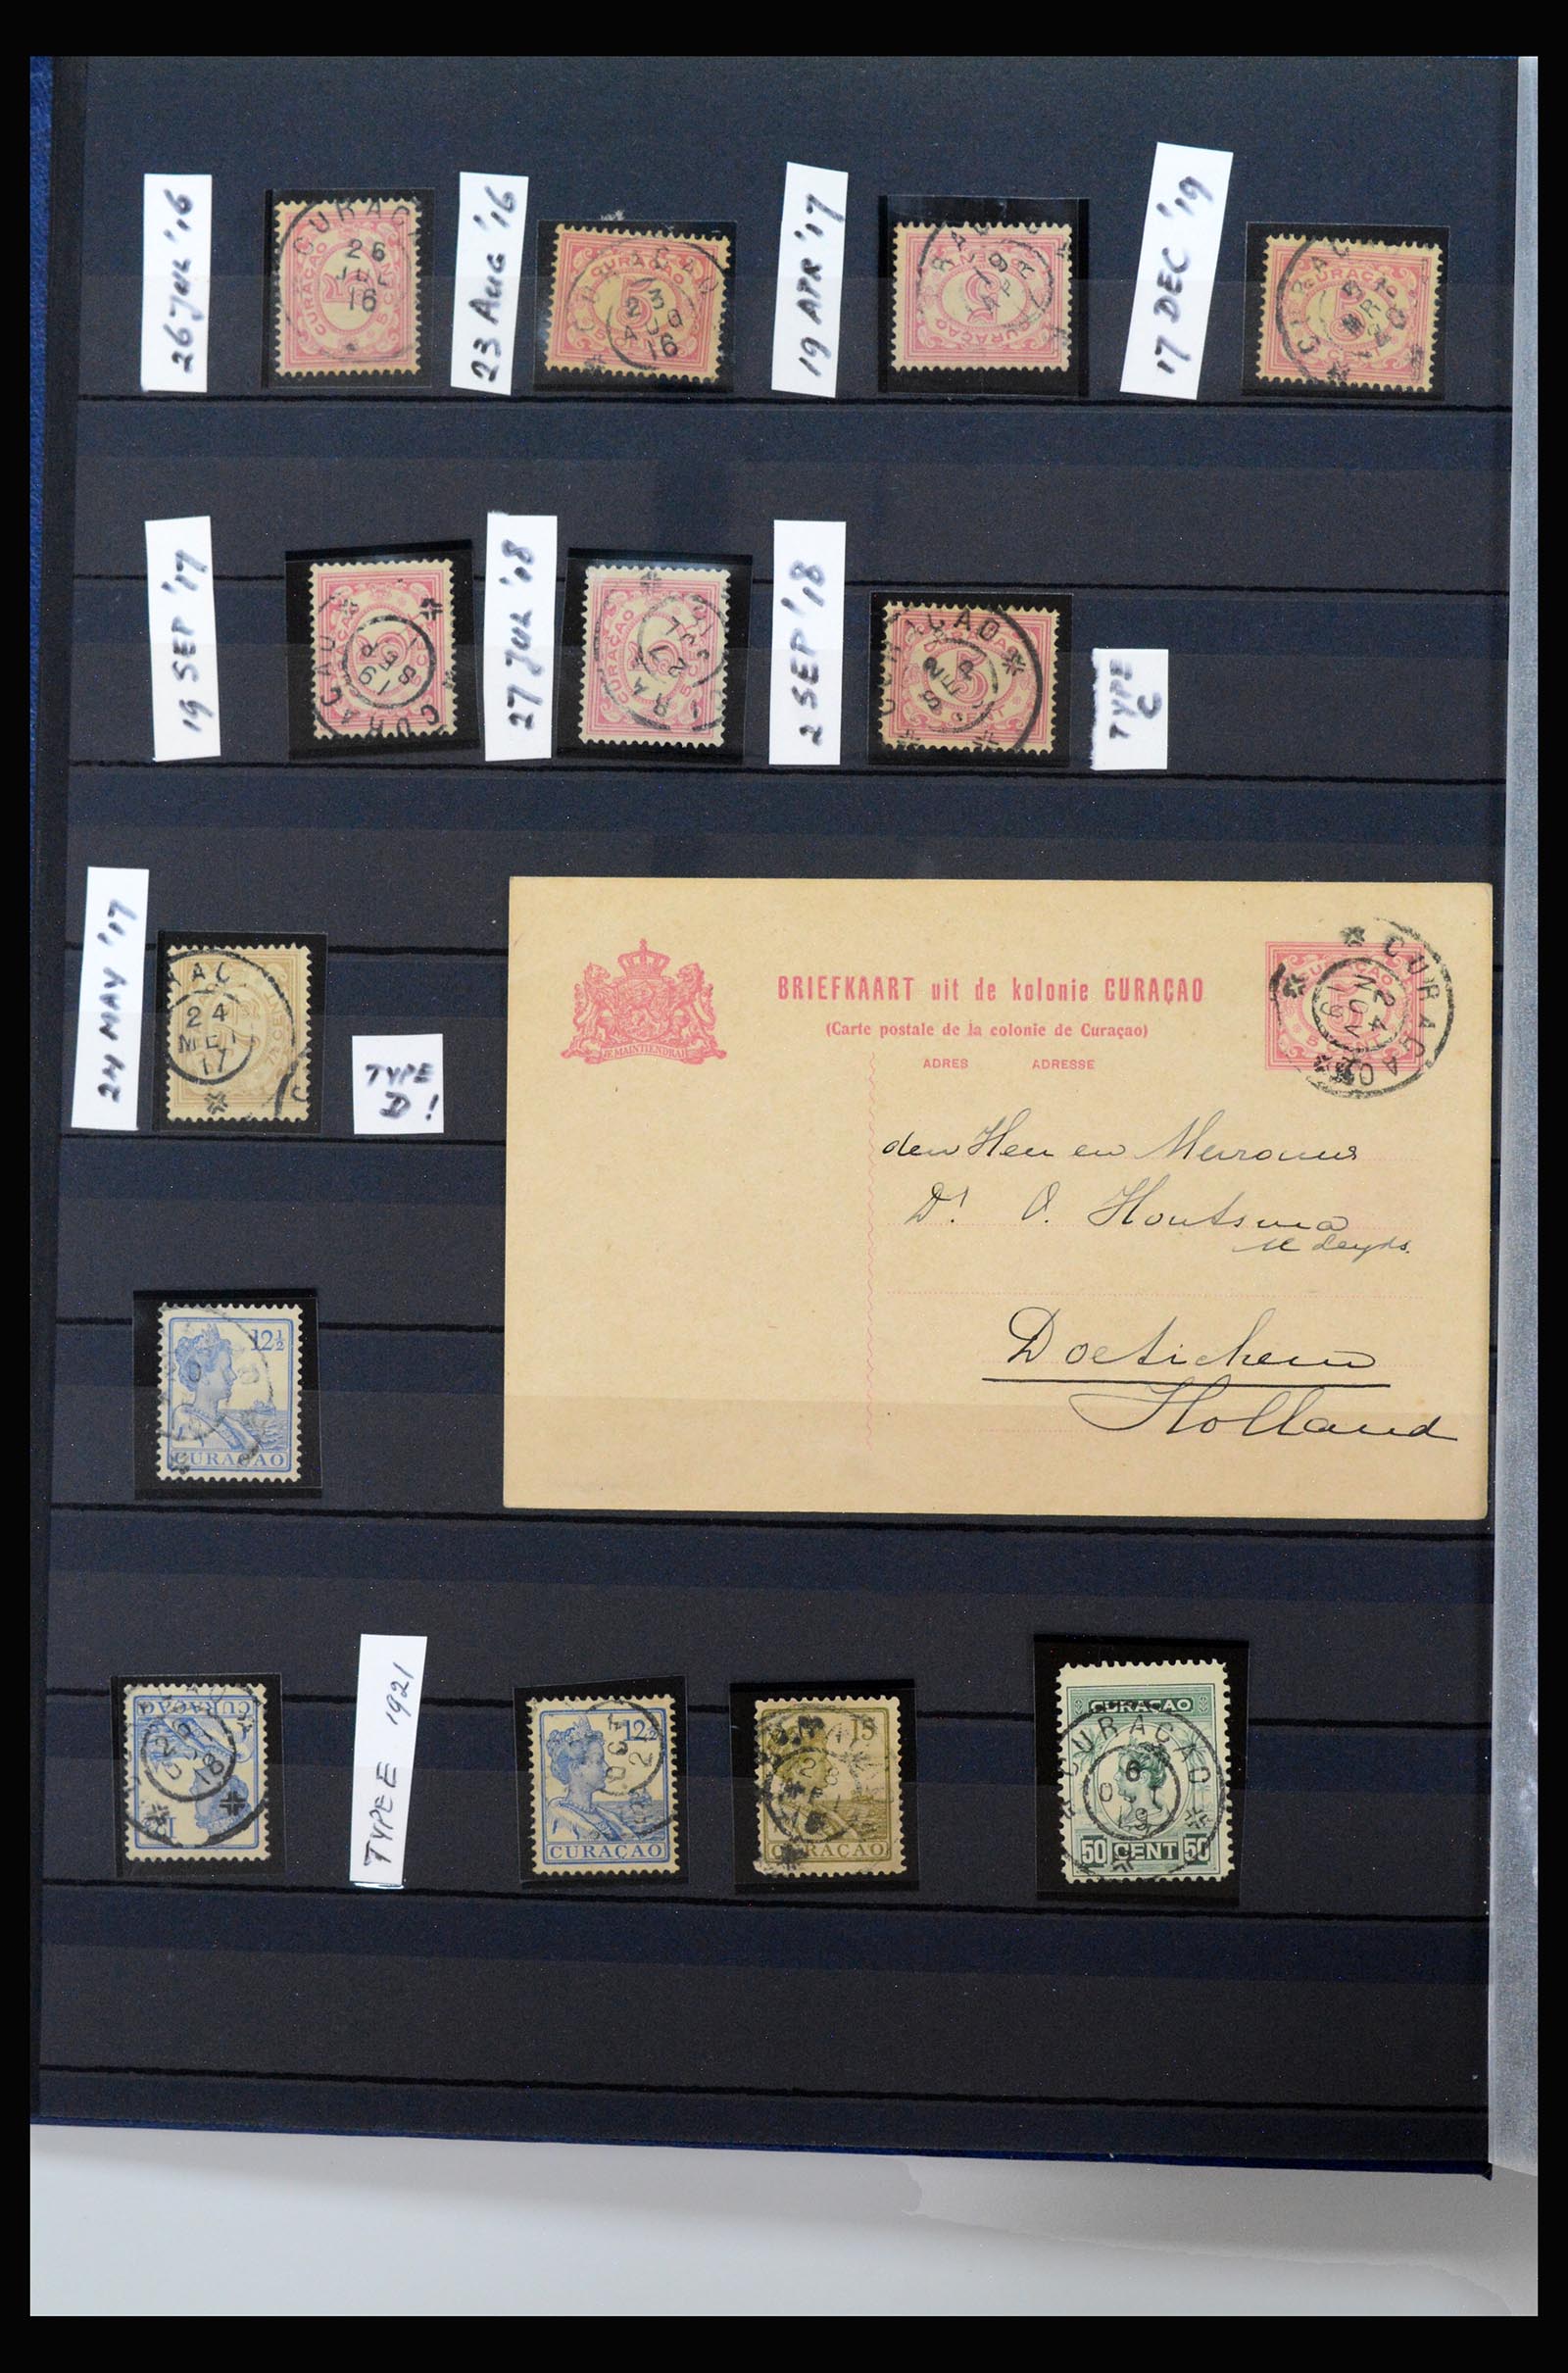 26 JUL '16
CURAÇAO
26
JUL
16
23 AUG '16
CURACAO
16
19 APR '17
19
APR
17 DEC '19
CURAÇAO
19 SEP '17
CURACAO
19
SEP
27 JUL '18
CURAÇAO
2 SEP '18
CURACAO
2
SEP
TYPE
C
24 MAY '17
24
MEI
17
TYPE
D!
BRIEFKAART uit de kolonie CURAÇAO
(Carte postale de la colonie de Curaçao)
ADRES ADRESSE
JE MAINTIENDRAI
CURACAO
24
NOV
19
den Heer en Mevrouw
Dr. O. Houtsma
Doetichem
Holland
12½
CURAÇAO
CURAÇAO
TYPE E 1921
12½
CURAÇAO
15
28
CURAÇAO
CURAÇAO
CURACAO
6
19
50 CENT 50